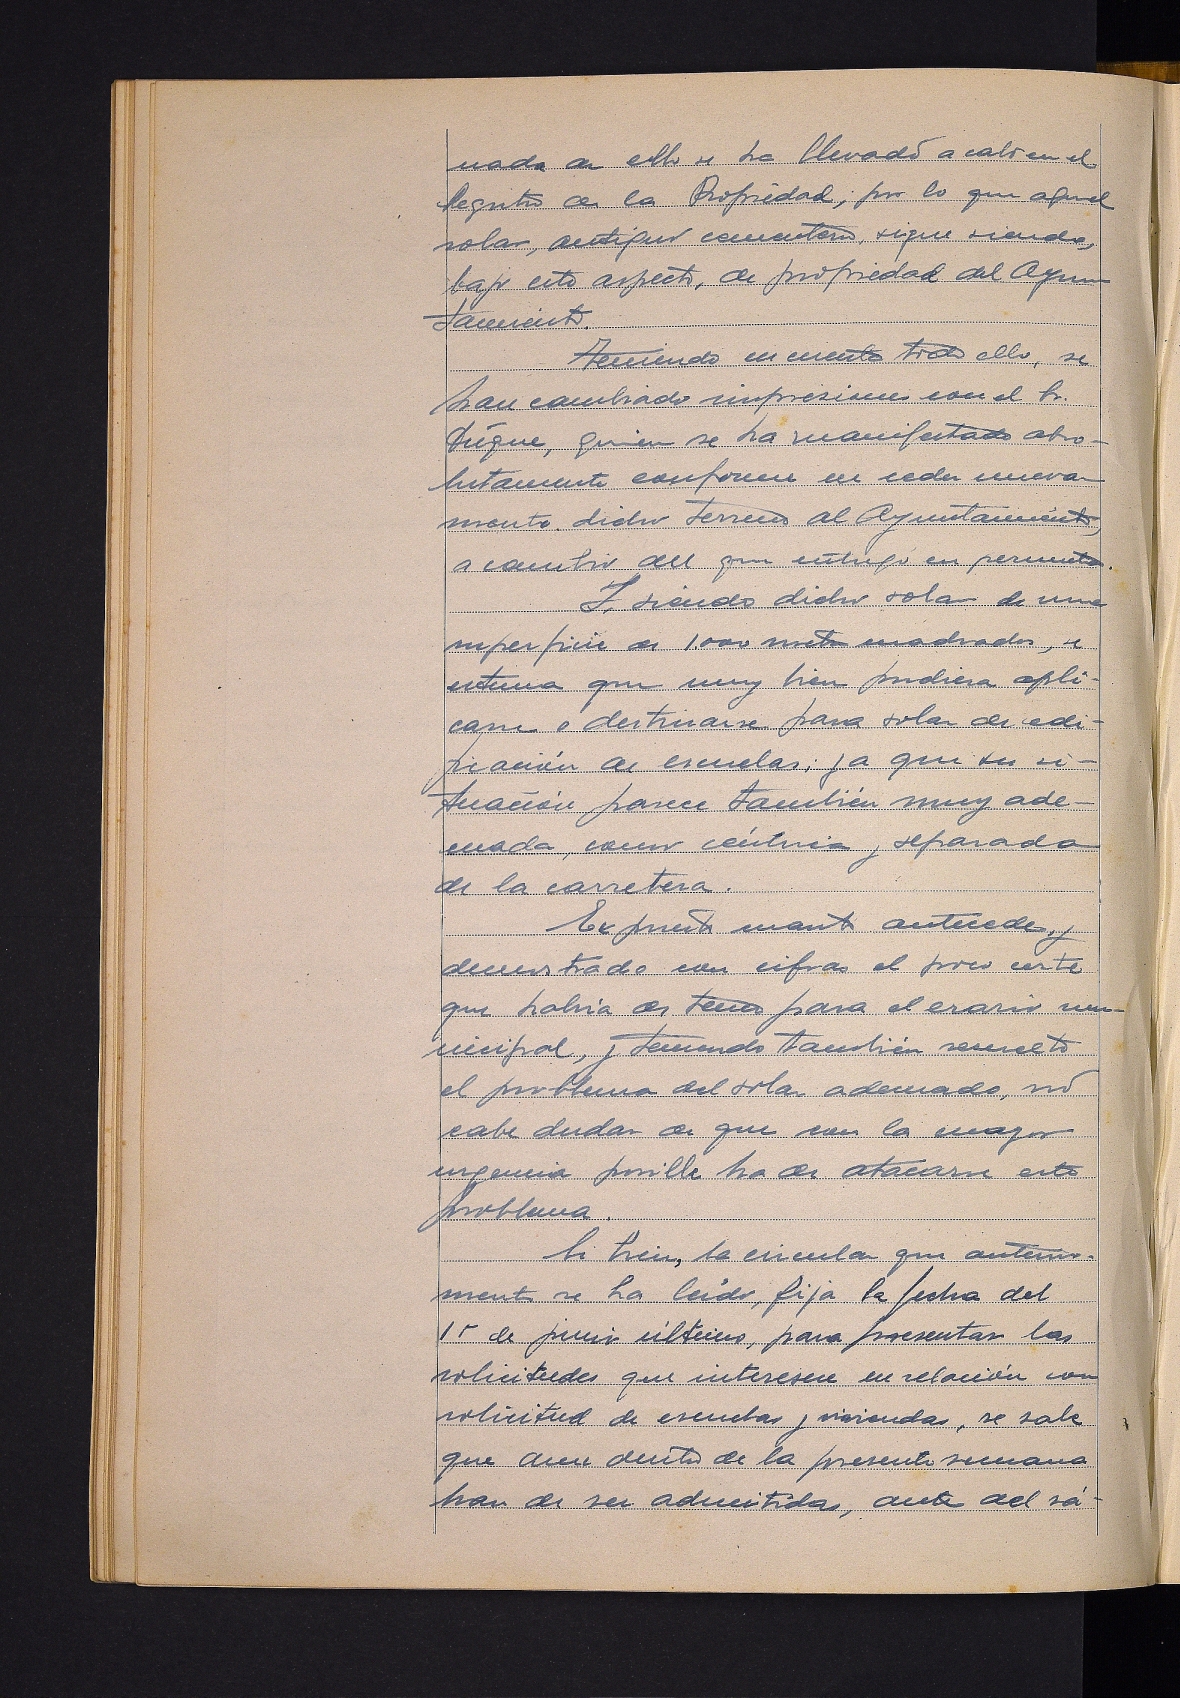 nada de ello se ha llevado a cabo en el
Registro de la Propiedad; por lo que aquel
solar, antiguo cementerio, sigue siendo,
bajo este aspecto, de propiedad del Ayun
tamiento.
Teniendo en cuenta todo ello, se
han cambiado impresiones con el Sr.
Duque, quien se ha manifestado abso-
lutamente conforme en ceder nueva
mente dicho terreno al Ayuntamiento,
a cambio del que entregó en permuta.
Y, siendo dicho solar de una
superficie de 1.000 metros cuadrados, se
estima que muy bien pudiera apli-
carse o destinarse para solar de edi-
ficación de escuelas; ya que su si-
tuación parece también muy ade-
cuada, como céntrica y separada
de la carretera.
Expuesto cuanto antecede, y
demostrado con cifras el poco coste
que habría de tener para el erario mu-
nicipal, y teniendo también resuelto
el problema del solar adecuado, no
cabe dudar de que con la mayor
urgencia posible ha de atacarse este
problema.
Si bien, la circular que anterior-
mente se ha leído, fija la fecha del
15 de junio último, para presentar las
solicitudes que interesen en relación con
solicitud de escuelas y viviendas, se sabe
que aun dentro de la presente semana
han de ser admitidas, antes del sá-